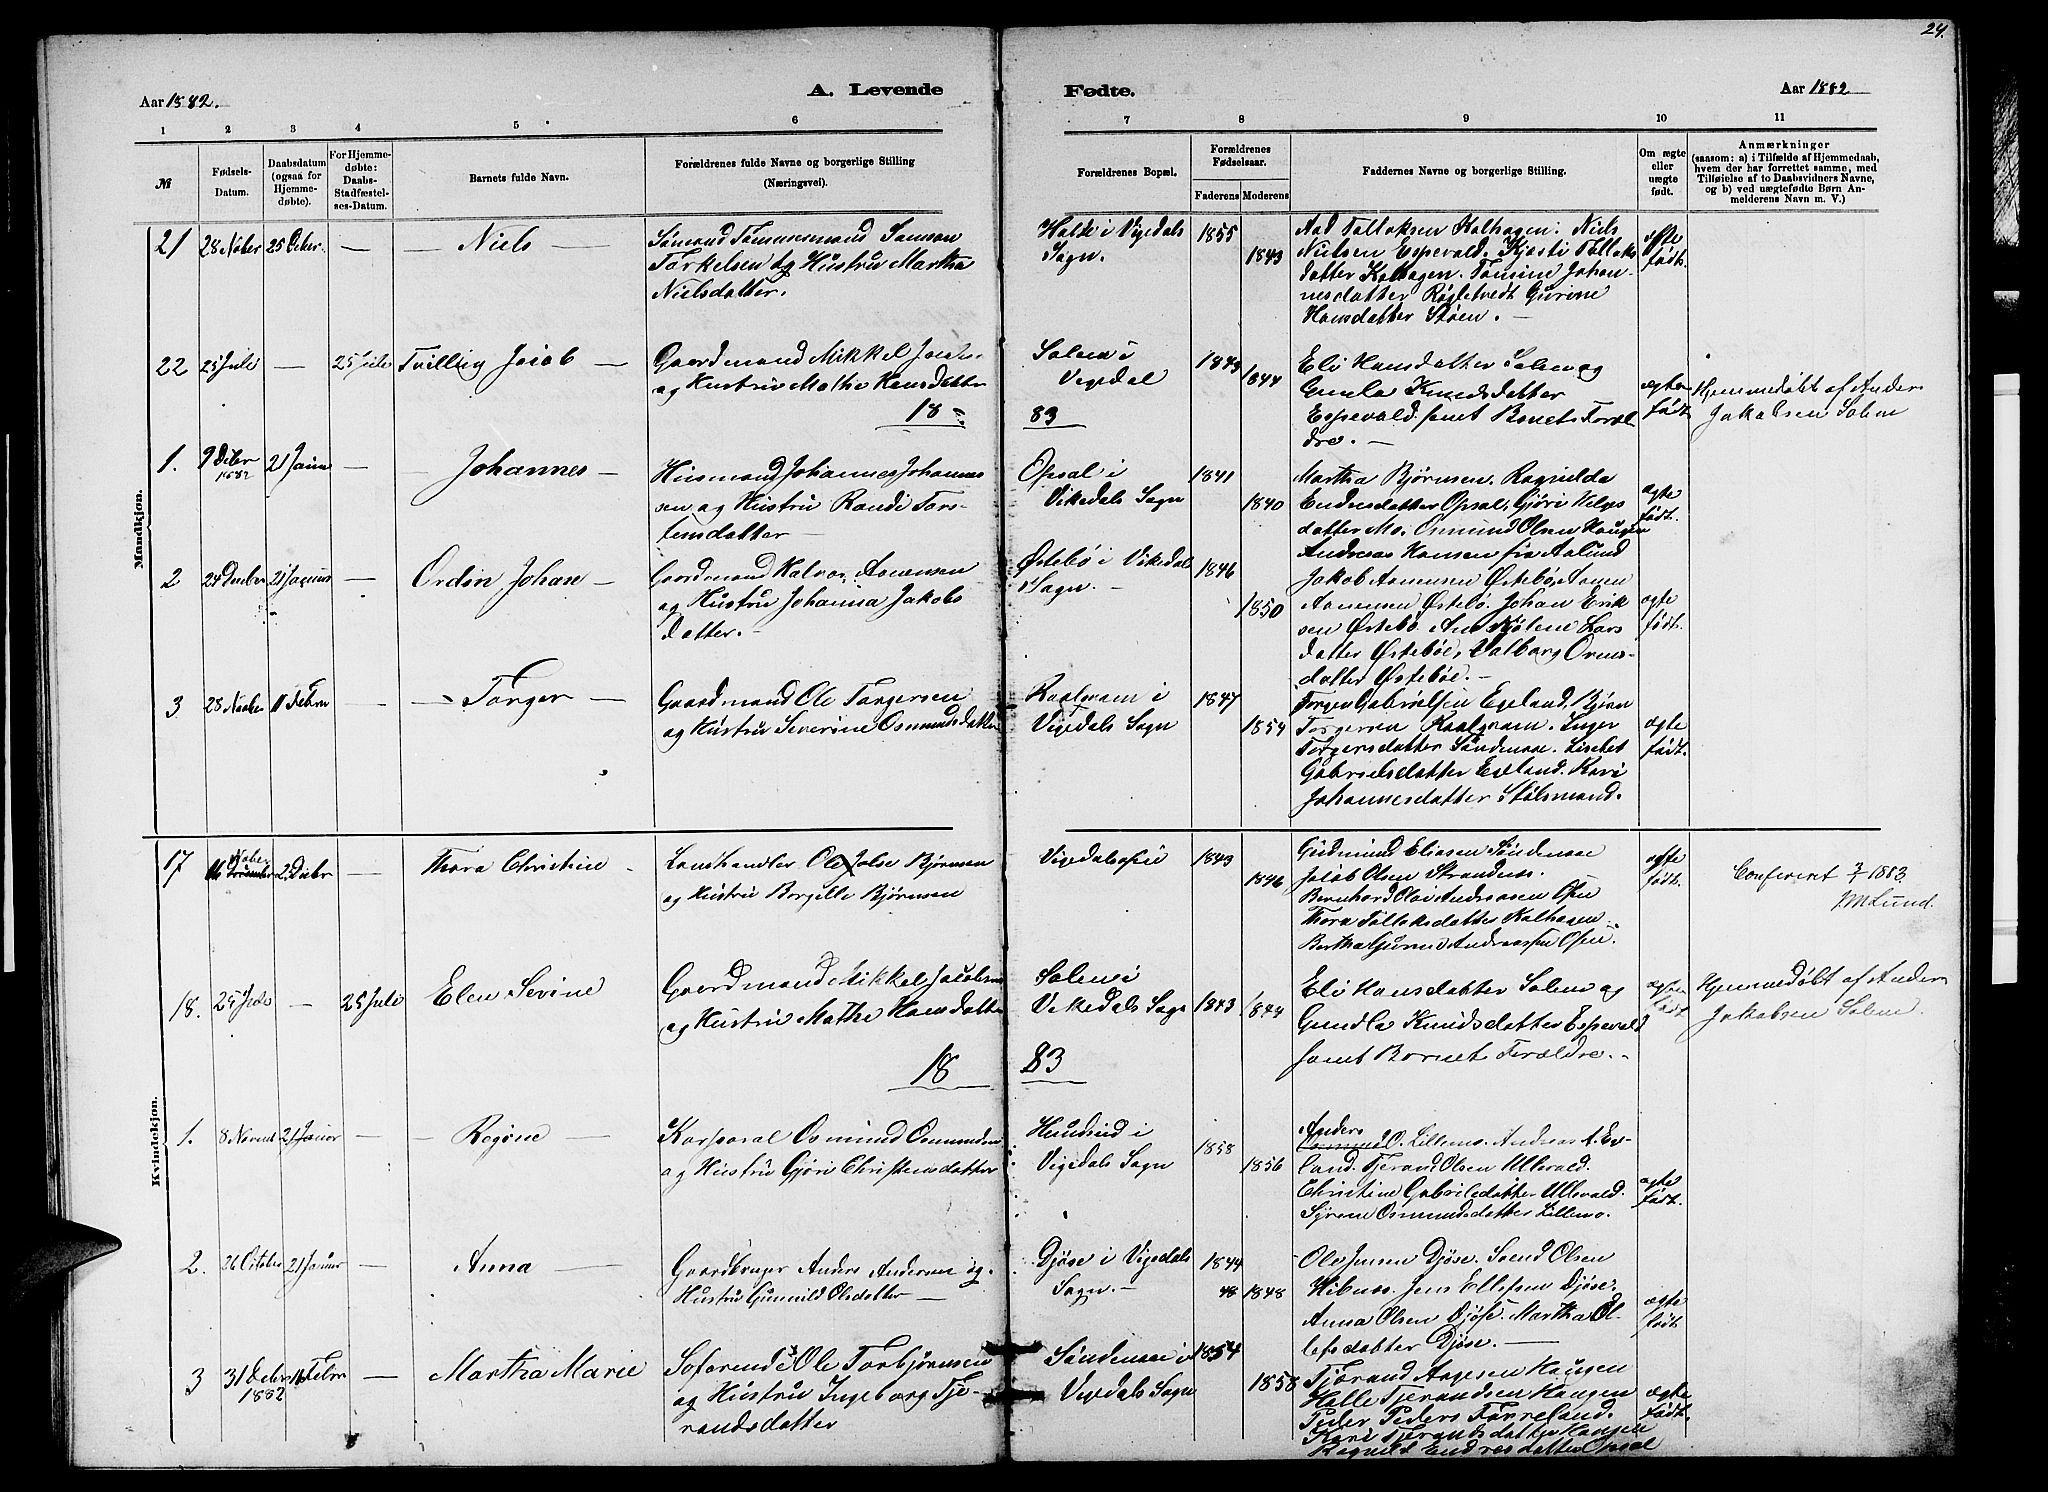 24.
Aar 1882.
A. Levende
Fødte.
Aar 1882
1 2 3 4 5 6 7 8 9 10 11
№
Fødsels-
Datum.
Daabsdatum
(ogsaa for
Hjemme-
døbte).
For Hjemme-
døbte:
Daabs-
Stadfæstel-
ses-Datum.
Barnets fulde Navn.
Forældrenes fulde Navne og borgerlige Stilling
(Næringsvei).
Forældrenes Bopæl.
Forældrenes
Fødselsaar.
Faderens Moderens
Faddernes Navne og borgerlige Stilling.
Om ægte
eller
uægte
født.
Anmærkninger
(saasom: a) i Tilfælde af Hjemmedaab,
hvem der har forrettet samme, med
Tilføielse af to Daabsvidners Navne,
og b) ved uægtefødte Børn An-
melderens Navn m. V.)
Mandkjøn.
21 28 Nober 25 Deber — — Niels —
Sømand Tømmermand Samson
Torkelsen og Hustru Martha
Nielsdatter.
i Vigedals
Sogn.
1855
1843
Aad Tollaksen Kalhagen. Niels
Nielsen Espevold. Kjersti Tollaks
datter Kalhagen. Tomine Johan-
nesdatter Røgletvedt Gurine
Hansdatter Støen. —
ægte
født.
22 25 Juli — 25 Juli Tvilling Jacob —
Gaardmand Mikkel
og Hustru Malthe Hansdatter
18
83
Solem i
Vigedal
1843
1844
Eli Hansdatter Solem og
Gunla Knudsdatter
Espevold samt Barnets Foræl
dre. —
ægte
født
Hjemmedøbt af Anders
Jakobsen Solem
1. 9 Deber
1882
21 Janu — — Johannes —
Husmand Johannes Johannes
sen og Hustru Rande Tors-
tensdatter —
Opsal i
Vikedals Sogn
1841
1840
Martha Bjørnsen. Ragnilda
Endresdatter Opsal, Gjøri Helges
datter Mo. Osmund Olsen Haugen
Andreas Hansen fra Aalund
ægte
født.
2 24 Deember 21 Januar — Ordin Johan —
Gaardmand Halvor Aanensen
og Hustru Johanna Jakobs
datter. —
Østebø i Vikedals
Sogn. —
1846
1850
Jakob Aanensen Østebø, Aanen
Aanensen Østebø. Johan Erik
sen Østebø Ane Kjølene Lars
datter Østebøe, Valborg Orms-
datter Østebøe. —
ægte
født.
3 28 Nober 11 Febru — — Torger —
Gaardmand Ole Torgersen
og Hustru Severine Osmundsdatter
Raalqvam i
Vigedals Sogn
1847
1854
Torger Gabrielsen Egeland, Bjørn
Torgersen Raalqvam. Inger
Torgersdatter Søndenaae. Lisebet
Gabrielsdatter Egeland. Kari
Johannesdatter Stølsmand.
ægte
født.
Kvindekjøn.
17 Nober 2 Debr — Thora Christine —
Landhandler Ole Jalse Bjørnsen
og Hustru Borgille Bjørnsen
Vigedalsøren
1843
1846
Gudmund Eliasen Søndenaae
Jacob Olsen Strandnes.
Bernhard Olai Andreasen Øren
Thora Tollaksdatter Kalhagen
Bertha Gurine Andreassen Øren.
ægte
født.
Confereret 3/1 1883
JMLund.
18. 25 Juli — 25 Juli Elen Sevine
Gaardmand Mikkel Jacobsen
og Hustru Mathe Hansdatter
18
83
Solem i
Vikedals Sogn
1843 1844
Eli Hansdatter Solem og
Gundla Knudsdatter Espevold
samt Barnets Forældre. —
ægte
født
Hjemmedøbt af Anders
Jakobsen Solem.
1. 8 Novemb 21 Januar — — Regine —
Korporal Osmund Osmundsen
og Hustru Gjøri Christensdatter
Hundseid i
Vigedals Sogn
1858
1856
Anders
O. Lillemo. Andreas A. Eg-
land. Tjerand Olsen Ullevold.
Christine Gabrielsdatter Ullevold.
Syrene Osmundsdatter Lillemo.
ægte
født.
2. 26 October 21 Januar — Anna —
Gaardbruger Anders Andersen og
Hustru Gunnild Olsdatter —
Djøse i Vigedals
Sogn. —
1844
48 1848
Ole Jensen Djøse. Svend Olsen
Hibnes. Jens Ellefsen Djøse.
Anna Olsen Djøse. Martha Ol-
lefsdatter Djøse. —
ægte
født
3 31 Deber
1882
11 Febru — Martha Marie
Sofarende Ole Torbjørnsen
og Hustru Ingeborg Tje-
randsdatter
Søndenaae i
Vigedals Sogn
1854
1858
Tjerand Aagesen Haugen
Halle Tjerandsen Haugen
Peder Peders Førreland.
Kari Tjerandsdatter Haugen
Ragnild Endresdatter Opsal
ægte
født.